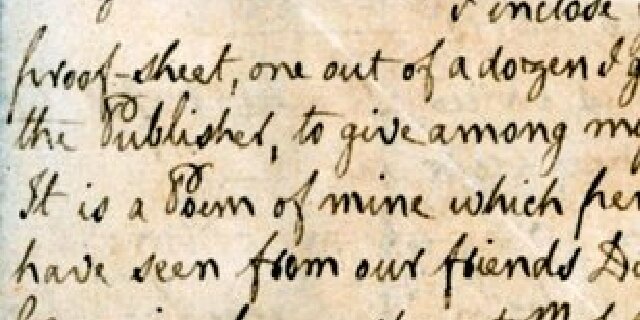 I inclose
proof-sheet, one out of a dozen I g
the Publisher, to give among my
It is a Poem of mine which per
have seen from our friends De